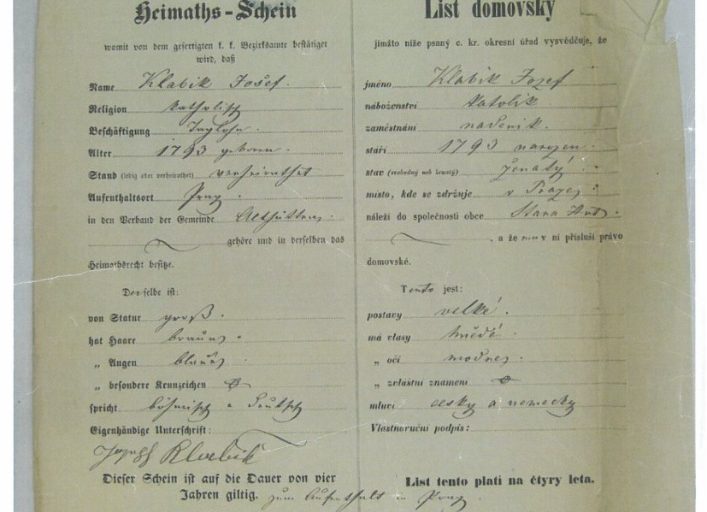 Heimaths-Schein
womit von dem gefertigten k. k. Bezirksamte bestätiget
wird, daß
Name Klabik Josef.
Religion katholisch
Beschäftigung Taglöhn.
Alter 1793 geboren.
Stand (ledig oder verheirathet) verheirathet
Aufenthaltsort Prag
in den Verband der Gemeinde Althütten
gehöre und in derselben das
Heimathsrecht besitze.
Derselbe ist:
von Statur groß.
hat Haare braun
„ Augen blau
„ besondere Kennzeichen
spricht böhmisch u deutsch
Eigenhändige Unterschrift:
Joseph Klabik
Dieser Schein ist auf die Dauer von vier
Jahren giltig. zum Aufenthalt in Prag.
List domovský
jimžto níže psaný c. kr. okresní úřad vysvědčuje, že
jméno Klabik Jozef
náboženství katolik
zaměstnání nadenik.
stáří 1793 narozen.
stav (svobodný neb ženatý) ženatý.
místo, kde se zdržuje v Praze
náleží do společnosti obce Stara Huť.
, a že mu v ní přísluší právo
domovské.
Tento jest:
postavy velké.
má vlasy hnědé.
„ očí modré
„ zvláštní znamení
mluví česky a německy
Vlastnoruční podpis:
List tento platí na čtyry leta.